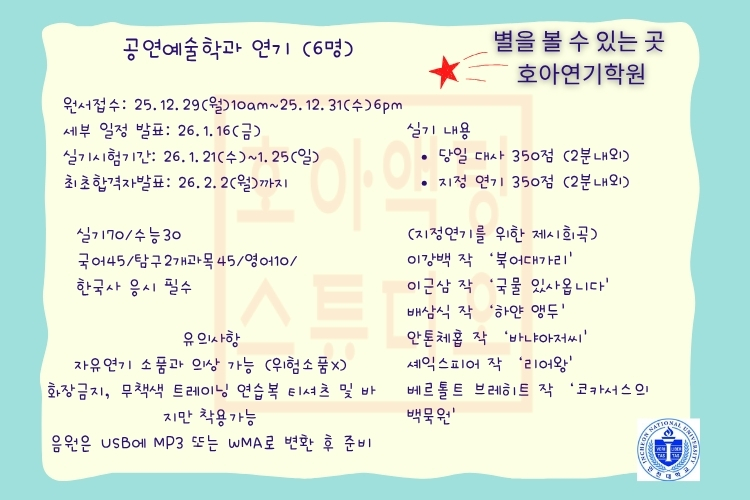 공연예술학과 연기 (6명)
별을 볼 수 있는 곳
호아연기학원
원서접수: 25.12.29(월)10am~25.12.31(수)6pm
세부 일정 발표: 26.1.16(금)
실기시험기간: 26.1.21(수)~1.25(일)
최초합격자발표: 26.2.2(월)까지
실기 내용
• 당일 대사 350점 (2분내외)
• 지정 연기 350점 (2분내외)
실기70/수능30
국어45/탐구2개과목45/영어10/
한국사 응시 필수
(지정연기를 위한 제시희곡)
이강백 작 '북어대가리'
이근삼 작 '국물 있사옵니다'
배삼식 작 '하얀 앵두'
안톤체홉 작 '바냐아저씨'
셰익스피어 작 '리어왕'
베르톨트 브레히트 작 '코카서스의
백묵원'
유의사항
자유연기 소품과 의상 가능 (위험소품x)
화장금지, 무책색 트레이닝 연습복 티셔츠 및 바
지만 착용가능
음원은 USB에 MP3 또는 WMA로 변환 후 준비
호아액팅
스튜디오
INCHEON NATIONAL UNIVERSITY
인천대학교